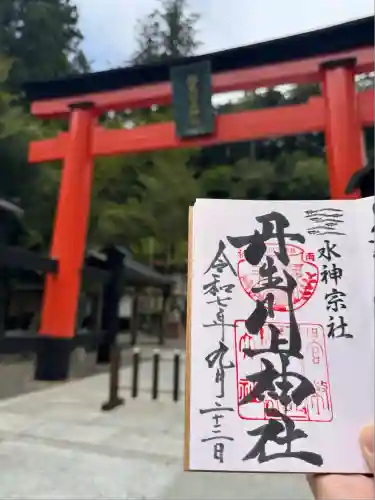 水神宗社
丹生川上神社
令和七年九月二十二日